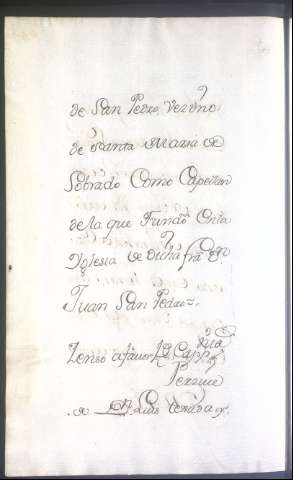 de San Pedro, Vezino
de Santa Maria de
Sobrado Como Capellan
de la que Fundò En la
Yglesia de Dicha frâ Dn
Juan San Pedro.
Zenso a favor
Perzive
de Dn. Luis